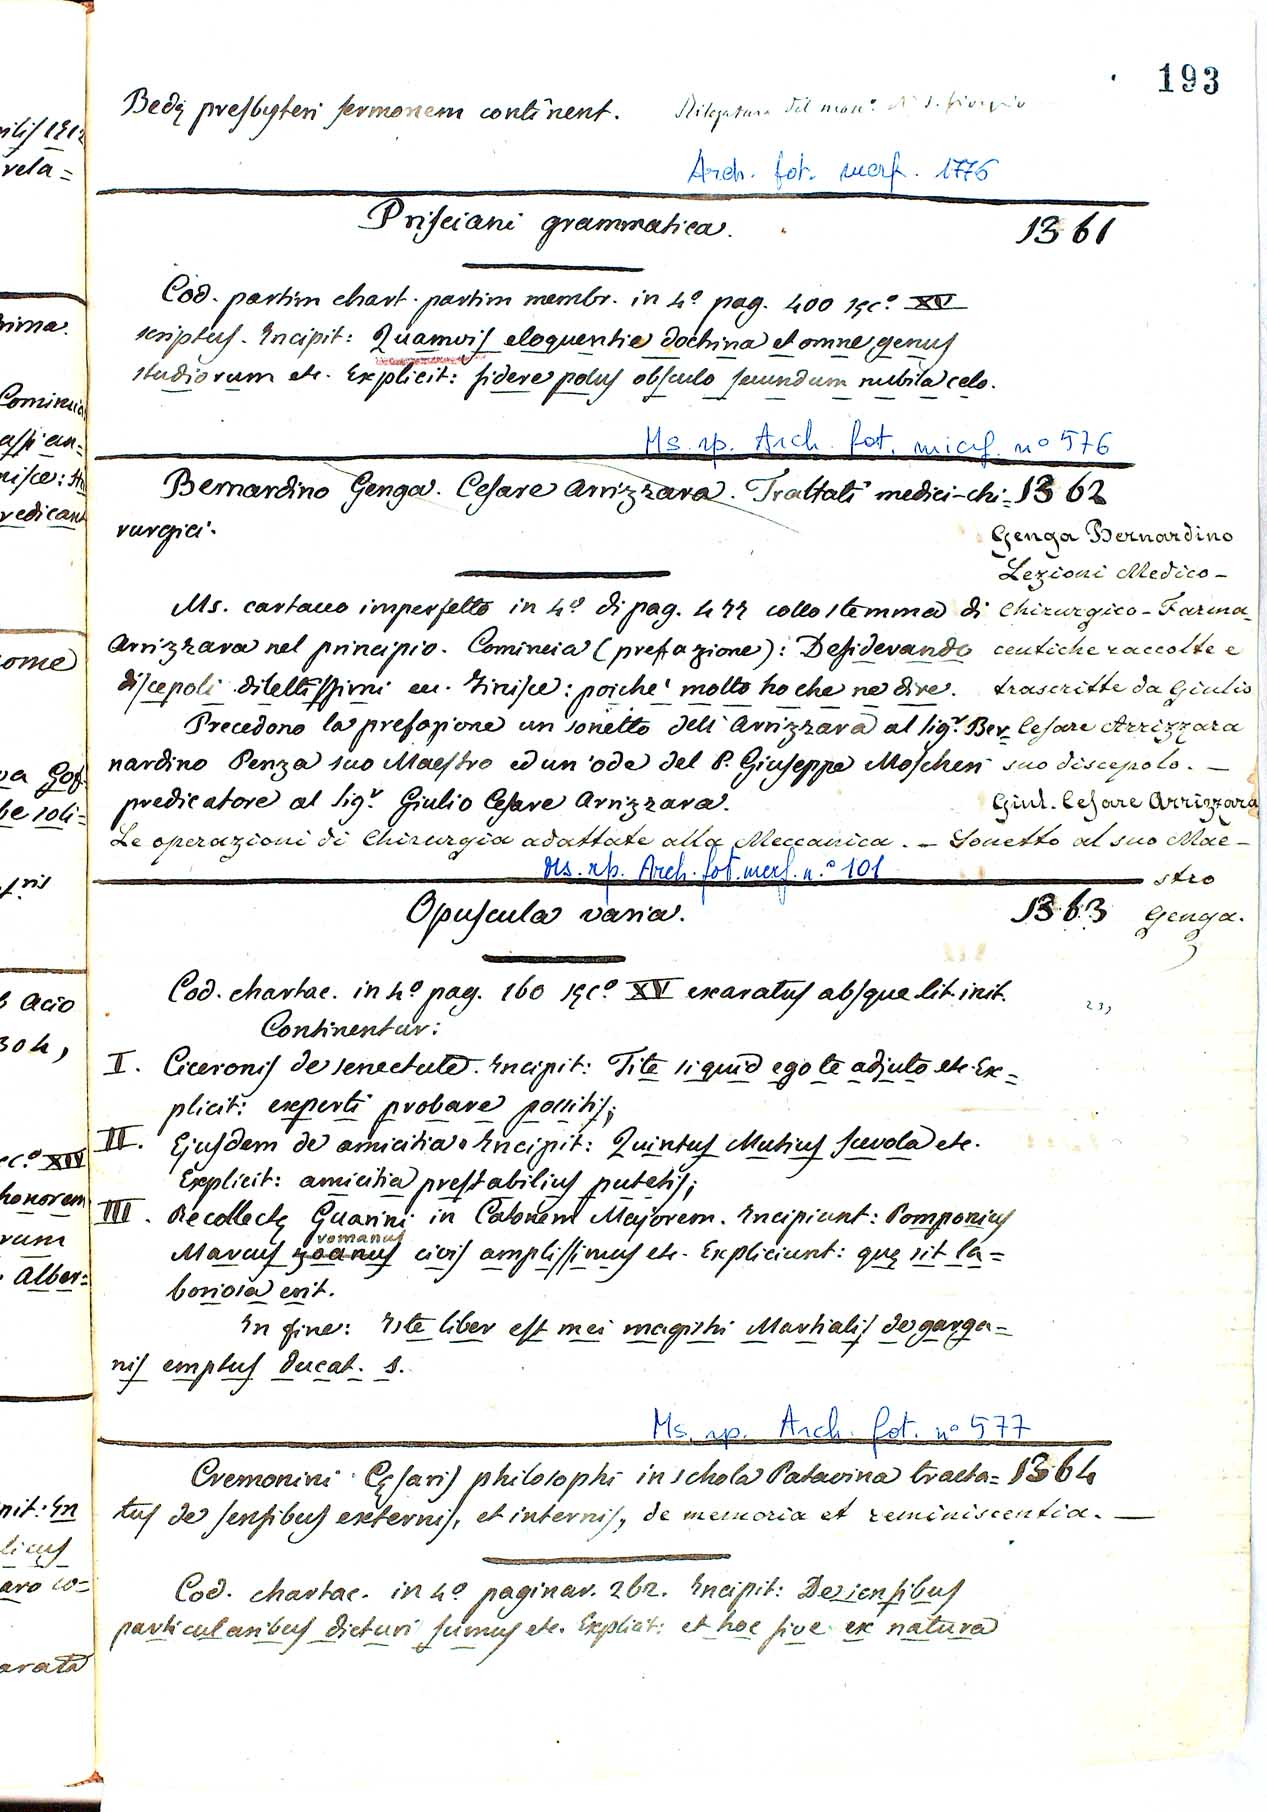 193
Bedę presbyteri sermonem continent. Rilegatura del mon.º di S. Giorgio
Arch. fot. mcrf. 1776
Prisciani grammatica. 1361
Cod. partim chart. partim membr. in 4º pag. 400 sęc.º XV
scriptus. Incipit: Quamvis eloquentie doctrina et omne genus
studiorum etc. Explicit: sidere polus obsculo secundum nubila celo.
Ms. rp. Arch. fot. micrf. nº 576
Bernardino Genga. Cesare Arrizzara. Trattati medici-chi= 1362
rurgici.
Ms. cartaceo imperfetto in 4º di pag. 477 collo stemma di
Arrizzara nel principio. Comincia (prefazione): Desiderando
discepoli dilettissimi ec. Finisce: poiche' molto ho che ne dire.
Precedono la prefazione un sonetto dell'Arrizzara al sig.r Ber=
nardino Penza suo Maestro ed un'ode del P. Giuseppe Moscheri
predicatore al sig.r Giulio Cesare Arrizzara.
Genga Bernardino
Lezioni Medico-
Chirurgico-Farma=
ceutiche raccolte e
trascritte da Giulio
Cesare Arrizzara
suo discepolo. —
Giul. Cesare Arrizzara
Le operazioni di Chirurgia adattate alla Meccanica. — Sonetto al suo Mae-
stro
Genga.
Ms. rp. Arch. fot. mcrf. n.º 101
Opuscula varia. 1363
Cod. chartac. in 4º pag. 160 sęc.º XV exaratus absque lit. init.
Continentur:
I. Ciceronis de senectute. Incipit: Tite si quid ego te adjuto etc. Ex=
plicit: experti probare possitis;
II. Ejusdem de amicitia. Incipit: Quintus Mutius Scevola etc.
Explicit: amicitia prestabilius putetis;
III. Recollectę Guarini in Catonem Majorem. Incipiunt: Pomponius
romanus
Marcus zoanus civis amplissimus etc. Expliciunt: quę sit la=
boriosa erit.
In fine: Iste liber est mei magistri Martialis de garga=
nis emptus ducat. 1.
Ms. rp. Arch. fot. nº 577
Cremonini Cęsaris philosophi in schola Patavina tracta= 1364
tus de sensibus externis, et internis, de memoria et reminiscentia. —
Cod. chartac. in 4º paginar. 262. Incipit: De sensibus
particularibus dicturi sumus etc. Explicit: et hoc sive ex natura